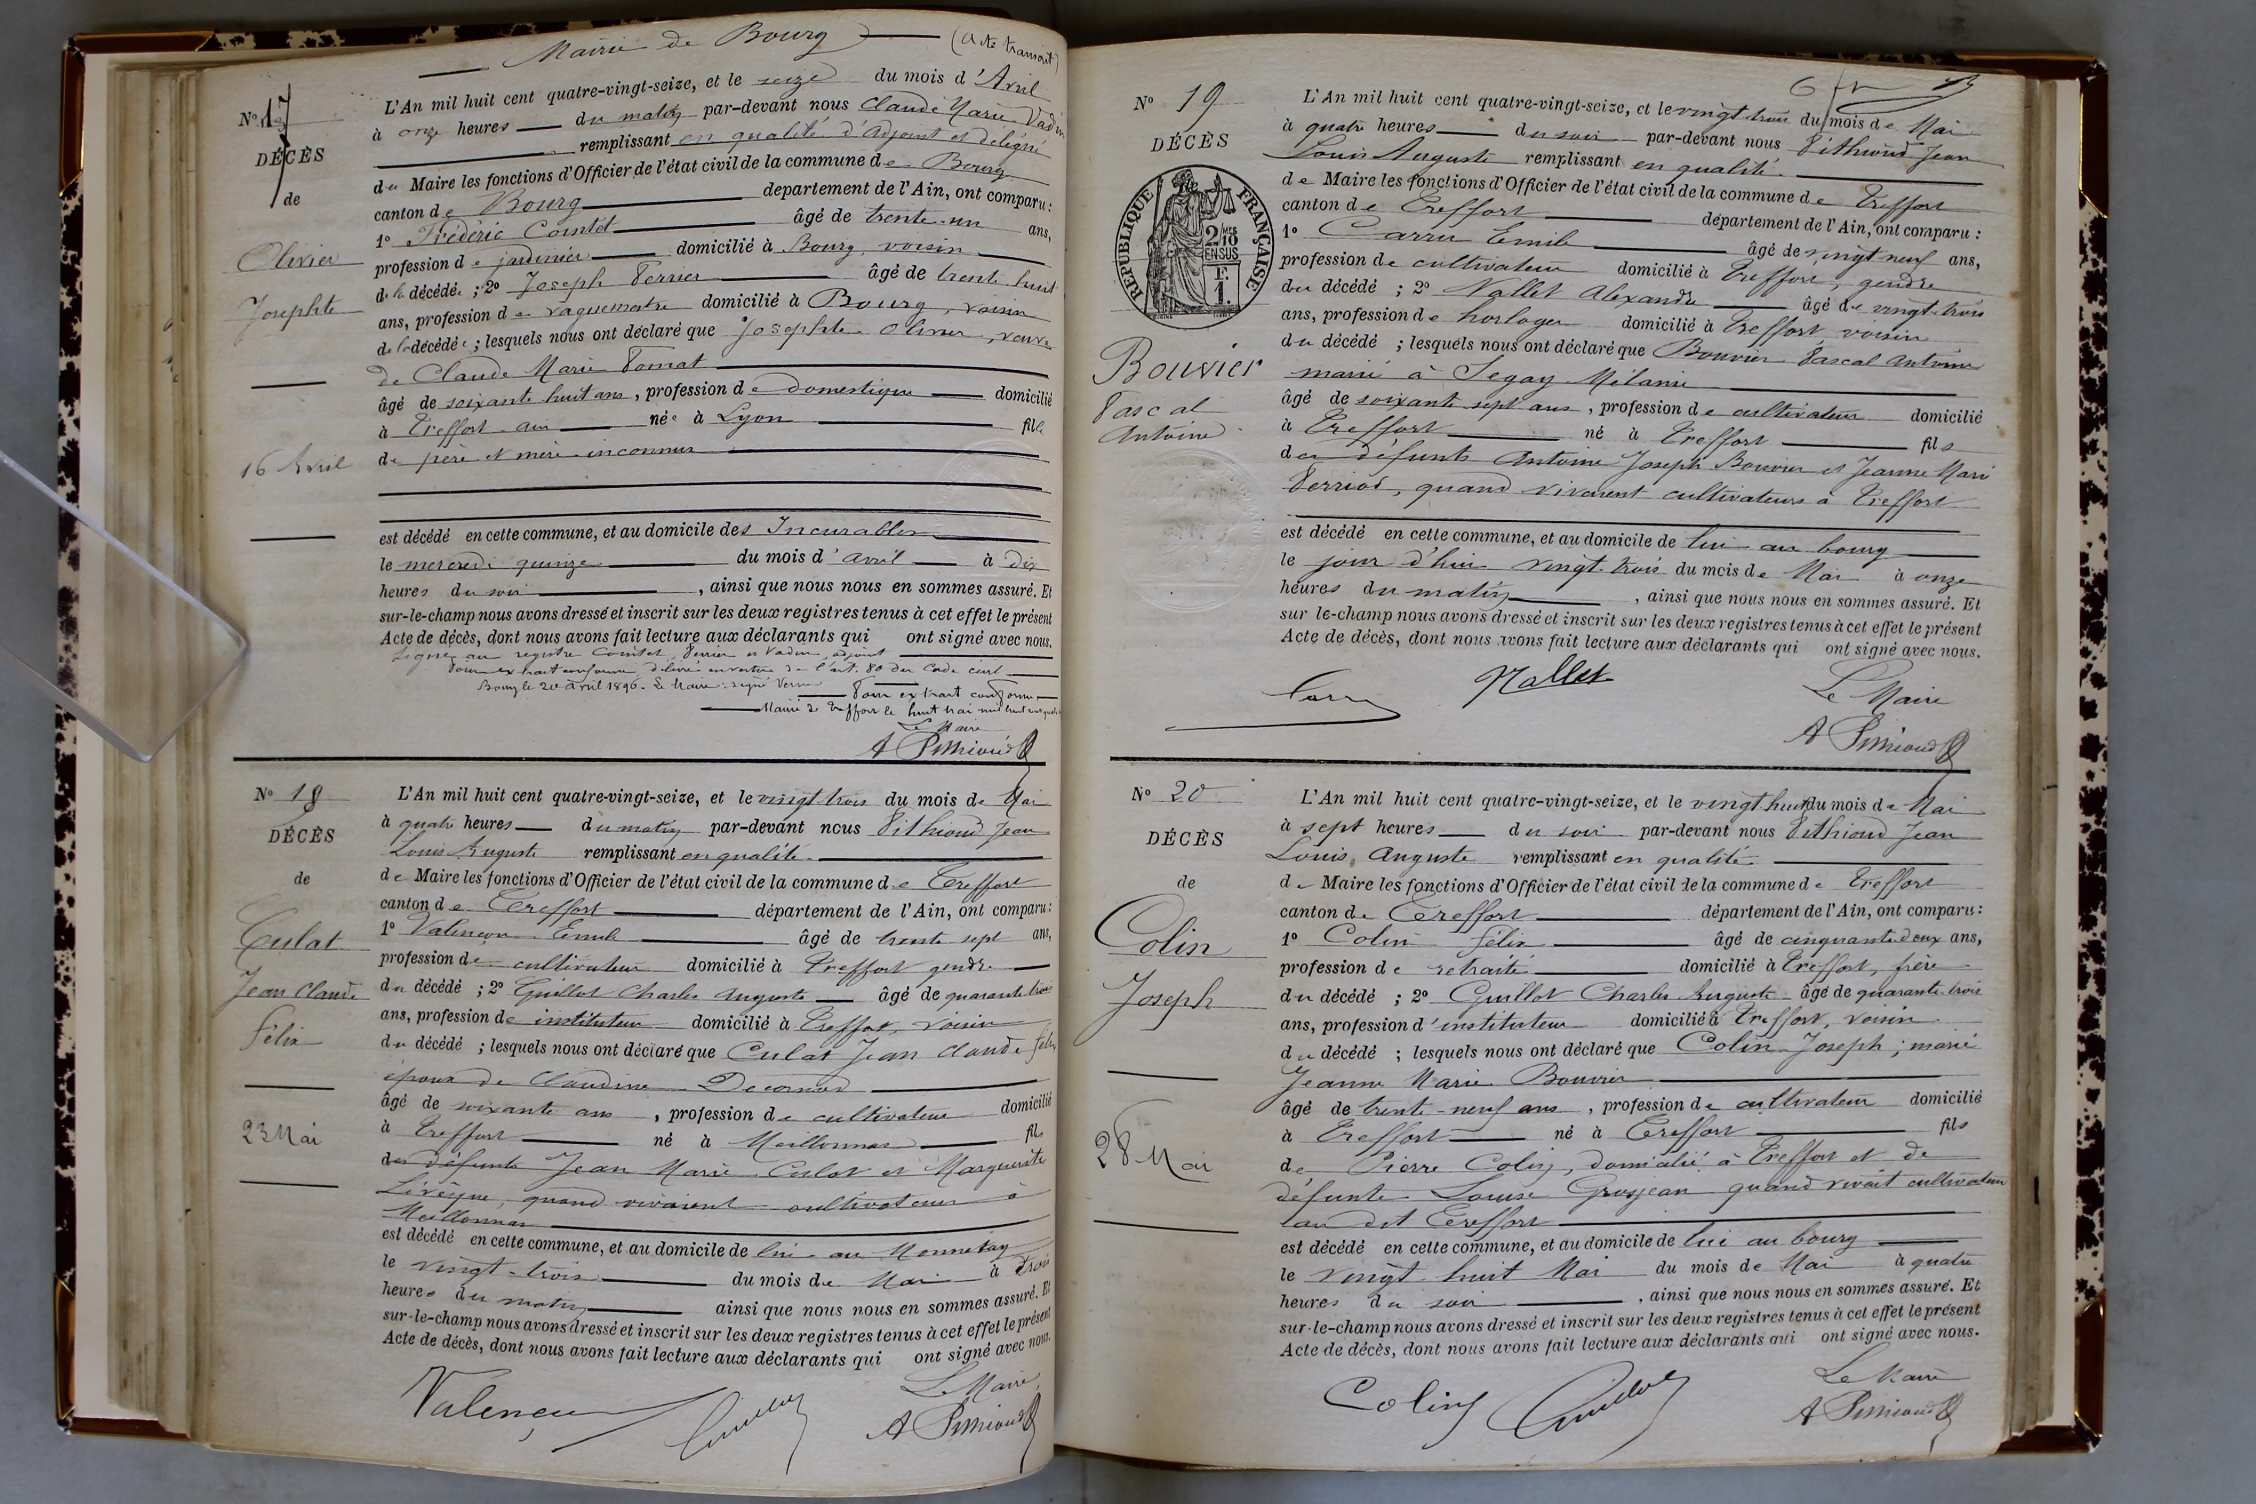 Mairie de Bourg (Acte transcrit)
N° 17
DÉCÈS
de
Olivier
Josephte
16 Avril
L'An mil huit cent quatre-vingt-seize, et le seize du mois d'Avril
à onze heures du matin par-devant nous Claude Marie Vadin
remplissant en qualité d'adjoint et délégué
du Maire les fonctions d'Officier de l'état civil de la commune de Bourg
canton de Bourg département de l'Ain, ont comparu :
1° Frédéric Comtet âgé de trente-un ans,
profession de jardinier domicilié à Bourg, voisin
de la décédée ; 2° Joseph Perrier âgé de trente huit
ans, profession de vaguemestre domicilié à Bourg, voisin
de la décédée ; lesquels nous ont déclaré que Josephte Olivier, veuve
de Claude Marie Pomat
âgé de soixante huit ans, profession de domestique domicilié
à Treffort Ain née à Lyon fille
de père et mère inconnus
est décédé en cette commune, et au domicile des Incurables
le mercredi quinze du mois d'avril à dix
heures du soir , ainsi que nous nous en sommes assuré. Et
sur-le-champ nous avons dressé et inscrit sur les deux registres tenus à cet effet le présent
Acte de décès, dont nous avons fait lecture aux déclarants qui ont signé avec nous.
Signé au registre Comtet, Perrier et Vadin, adjoint
Pour extrait conforme délivré en vertu de l'art. 80 du Code civil
Bourg le 20 avril 1896. Le Maire : signé
Pour extrait conforme
Mairie de Treffort le huit mai mil huit cent
Le Maire
A Pithioud
N° 18
DÉCÈS
de
Culat
Jean Claude
Félix
23 Mai
L'An mil huit cent quatre-vingt-seize, et le vingt trois du mois de Mai
à quatre heures du matin par-devant nous Pithioud Jean
Louis Auguste remplissant en qualité
de Maire les fonctions d'Officier de l'état civil de la commune de Treffort
canton de Treffort département de l'Ain, ont comparu :
1° Valençon Emile âgé de trente sept ans,
profession de cultivateur domicilié à Treffort gendre
du décédé ; 2° Guillot Charles Auguste âgé de quarante trois
ans, profession de instituteur domicilié à Treffort, voisin
du décédé ; lesquels nous ont déclaré que Culat Jean Claude Félix
époux de Claudine
âgé de soixante ans , profession de cultivateur domicilié
à Treffort né à Meillonnas fils
des défunts Jean Marie Culat et Marguerite
Lévêque, quand vivaient cultivateurs à
Meillonnas
est décédé en cette commune, et au domicile de lui au Monnetay
le vingt-trois du mois de Mai à trois
heures du matin ainsi que nous nous en sommes assuré. Et
sur-le-champ nous avons dressé et inscrit sur les deux registres tenus à cet effet le présent
Acte de décès, dont nous avons fait lecture aux déclarants qui ont signé avec nous.
Valençon Guillot Le Maire
A Pithioud
N° 19
DÉCÈS
RÉPUBLIQUE FRANÇAISE
2/10 MES EN SUS
F. 1.
Bouvier
Pascal
Antoine
L'An mil huit cent quatre-vingt-seize, et le vingt trois du mois de Mai
à quatre heures du soir par-devant nous Pithioud Jean
Louis Auguste remplissant en qualité
de Maire les fonctions d'Officier de l'état civil de la commune de Treffort
canton de Treffort département de l'Ain, ont comparu :
1° Carru Emile âgé de vingt neuf ans,
profession de cultivateur domicilié à Treffort, gendre
du décédé ; 2° Nallet Alexandre âgé de vingt-trois
ans, profession de horloger domicilié à Treffort, voisin
du décédé ; lesquels nous ont déclaré que Bouvier Pascal Antoine
marié à Segay Mélanie
âgé de soixante sept ans , profession de cultivateur domicilié
à Treffort né à Treffort fils
des défunts Antoine Joseph Bouvier et Jeanne Marie
Perriod, quand vivaient cultivateurs à Treffort
est décédé en cette commune, et au domicile de lui au bourg
le jour d'hui vingt-trois du mois de Mai à onze
heures du matin , ainsi que nous nous en sommes assuré. Et
sur le-champ nous avons dressé et inscrit sur les deux registres tenus à cet effet le présent
Acte de décès, dont nous avons fait lecture aux déclarants qui ont signé avec nous.
Carru Nallet Le Maire
A Pithioud
N° 20
DÉCÈS
de
Colin
Joseph
28 Mai
L'An mil huit cent quatre-vingt-seize, et le vingt huit du mois de Mai
à sept heures du soir par-devant nous Pithioud Jean
Louis Auguste remplissant en qualité
de Maire les fonctions d'Officier de l'état civil de la commune de Treffort
canton de Treffort département de l'Ain, ont comparu :
1° Colin Félix âgé de cinquante deux ans,
profession de retraité domicilié à Treffort, frère
du décédé ; 2° Guillot Charles Auguste âgé de quarante-trois
ans, profession d'instituteur domicilié à Treffort, voisin
du décédé ; lesquels nous ont déclaré que Colin Joseph ; marié
Jeanne Marie Bouvier
âgé de trente-neuf ans , profession de cultivateur domicilié
à Treffort né à Treffort fils
de Pierre Colin, domicilié à Treffort et de
défunte Louise Grosjean quand vivait cultivateur
au dit Treffort
est décédé en cette commune, et au domicile de lui au bourg
le vingt huit Mai du mois de Mai à quatre
heures du soir , ainsi que nous nous en sommes assuré. Et
sur-le-champ nous avons dressé et inscrit sur les deux registres tenus à cet effet le présent
Acte de décès, dont nous avons fait lecture aux déclarants qui ont signé avec nous.
Colin Guillot Le Maire
A Pithioud